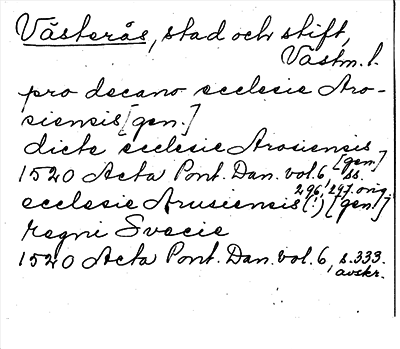 Västerås, stad och stift,
Västm. l.
pro decano ecclesie Aro-
siensis [gen.]
dicte ecclesie Arosiensis
[gen.]
1520 Acta Pont. Dan. vol. 6, ss.
296, 297. orig.
ecclesie Arusiensis (!) [gen.]
regni Svecie
1520 Acta Pont. Dan. vol. 6, s. 333.
avskr.